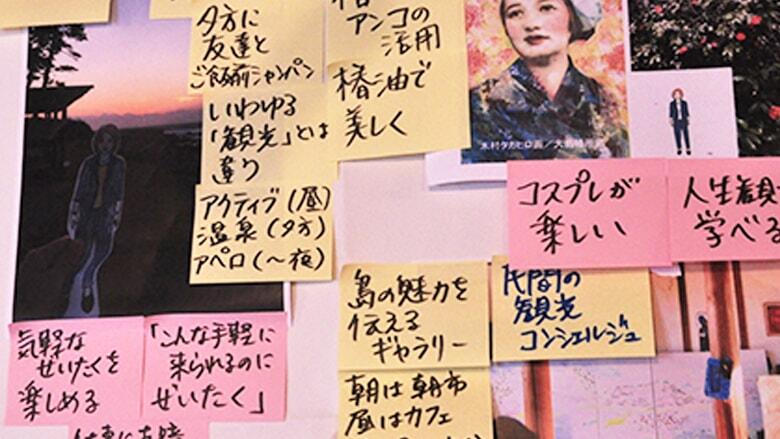 夕方に
友達と
ご飯前シャンパン
いわゆる
「観光」とは
違う
アクティブ(昼)
温泉(夕方)
アペロ(〜夜)
アンコの
活用
椿油で
美しく
木村タカヒロ画/大島
コスプレが
楽しい
人生観
学べる
島の魅力を
伝える
ギャラリー
民間の
観光
コンシェルジュ
気軽な
ぜいたくを
楽しめる
「こんな手軽に
来られるのに
ぜいたく」
朝は朝市
昼はカフェ